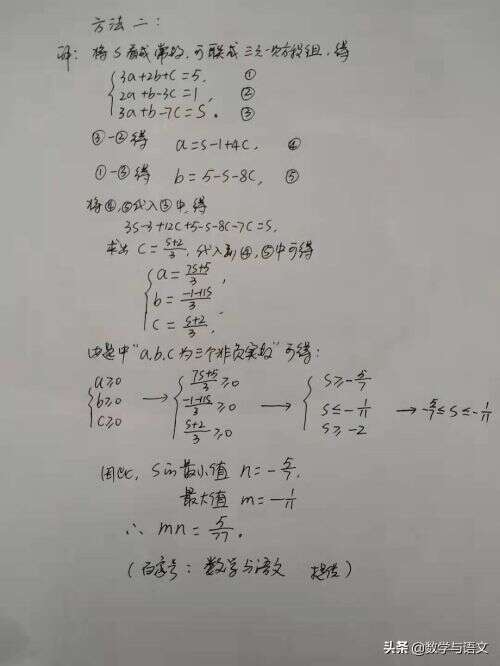 方法二：
解：将S看成常数，可联成三元一次方程组，得
3a+2b+c=5, ①
2a+b-3c=1, ②
3a+b-7c=S. ③
③-②得 a=S-1+4c, ④
①-③得 b=5-S-8c, ⑤
将④,⑤代入③中,得
3S-3+12c+5-S-8c-7c=S,
求出 c=\frac{S+2}{3}, 代入到④,⑤中可得
a=\frac{7S+5}{3},
b=\frac{-1-11S}{3}
c=\frac{S+2}{3},
由题中“a,b,c为三个非负实数”可得：
a≥0 \frac{7S+5}{3}≥0 S≥-\frac{5}{7}
b≥0 → \frac{-1-11S}{3}≥0 → S≤-\frac{1}{11} → -\frac{5}{7}≤S≤-\frac{1}{11}
c≥0 \frac{S+2}{3}≥0 S≥-2
因此, S的最小值 n=-\frac{5}{7},
最大值 m=-\frac{1}{11}
∴ mn=\frac{5}{77}.
(百家号：数学与语文 提供)
头条 @数学与语文